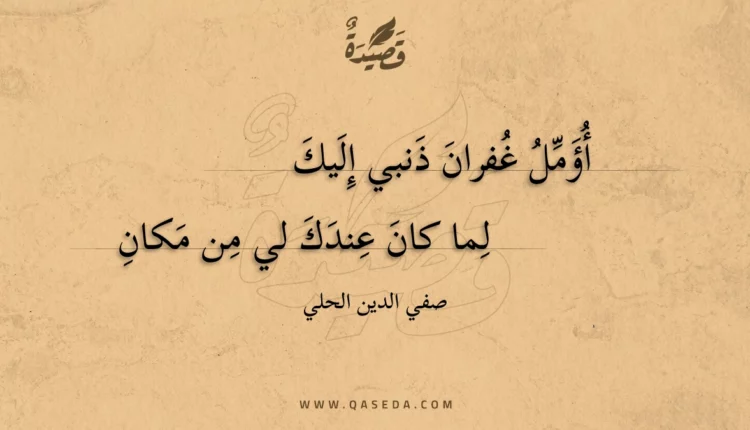 قَصِيدَةٌ
أُؤَمِّلُ غُفرانَ ذَنبي إِلَيكَ
لِما كانَ عِندَكَ لي مِن مَكانِ
صفي الدين الحلي
WWW.QASEDA.COM